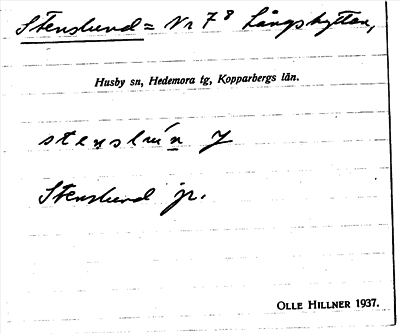 Stenslund = Nr 7⁸ Långshyttan,
Husby sn, Hedemora tg, Kopparbergs län.
Stenslund jr.
OLLE HILLNER 1937.